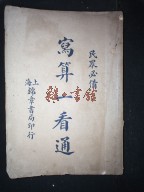 民眾必備
寫算一看通
上海錦章書局印行